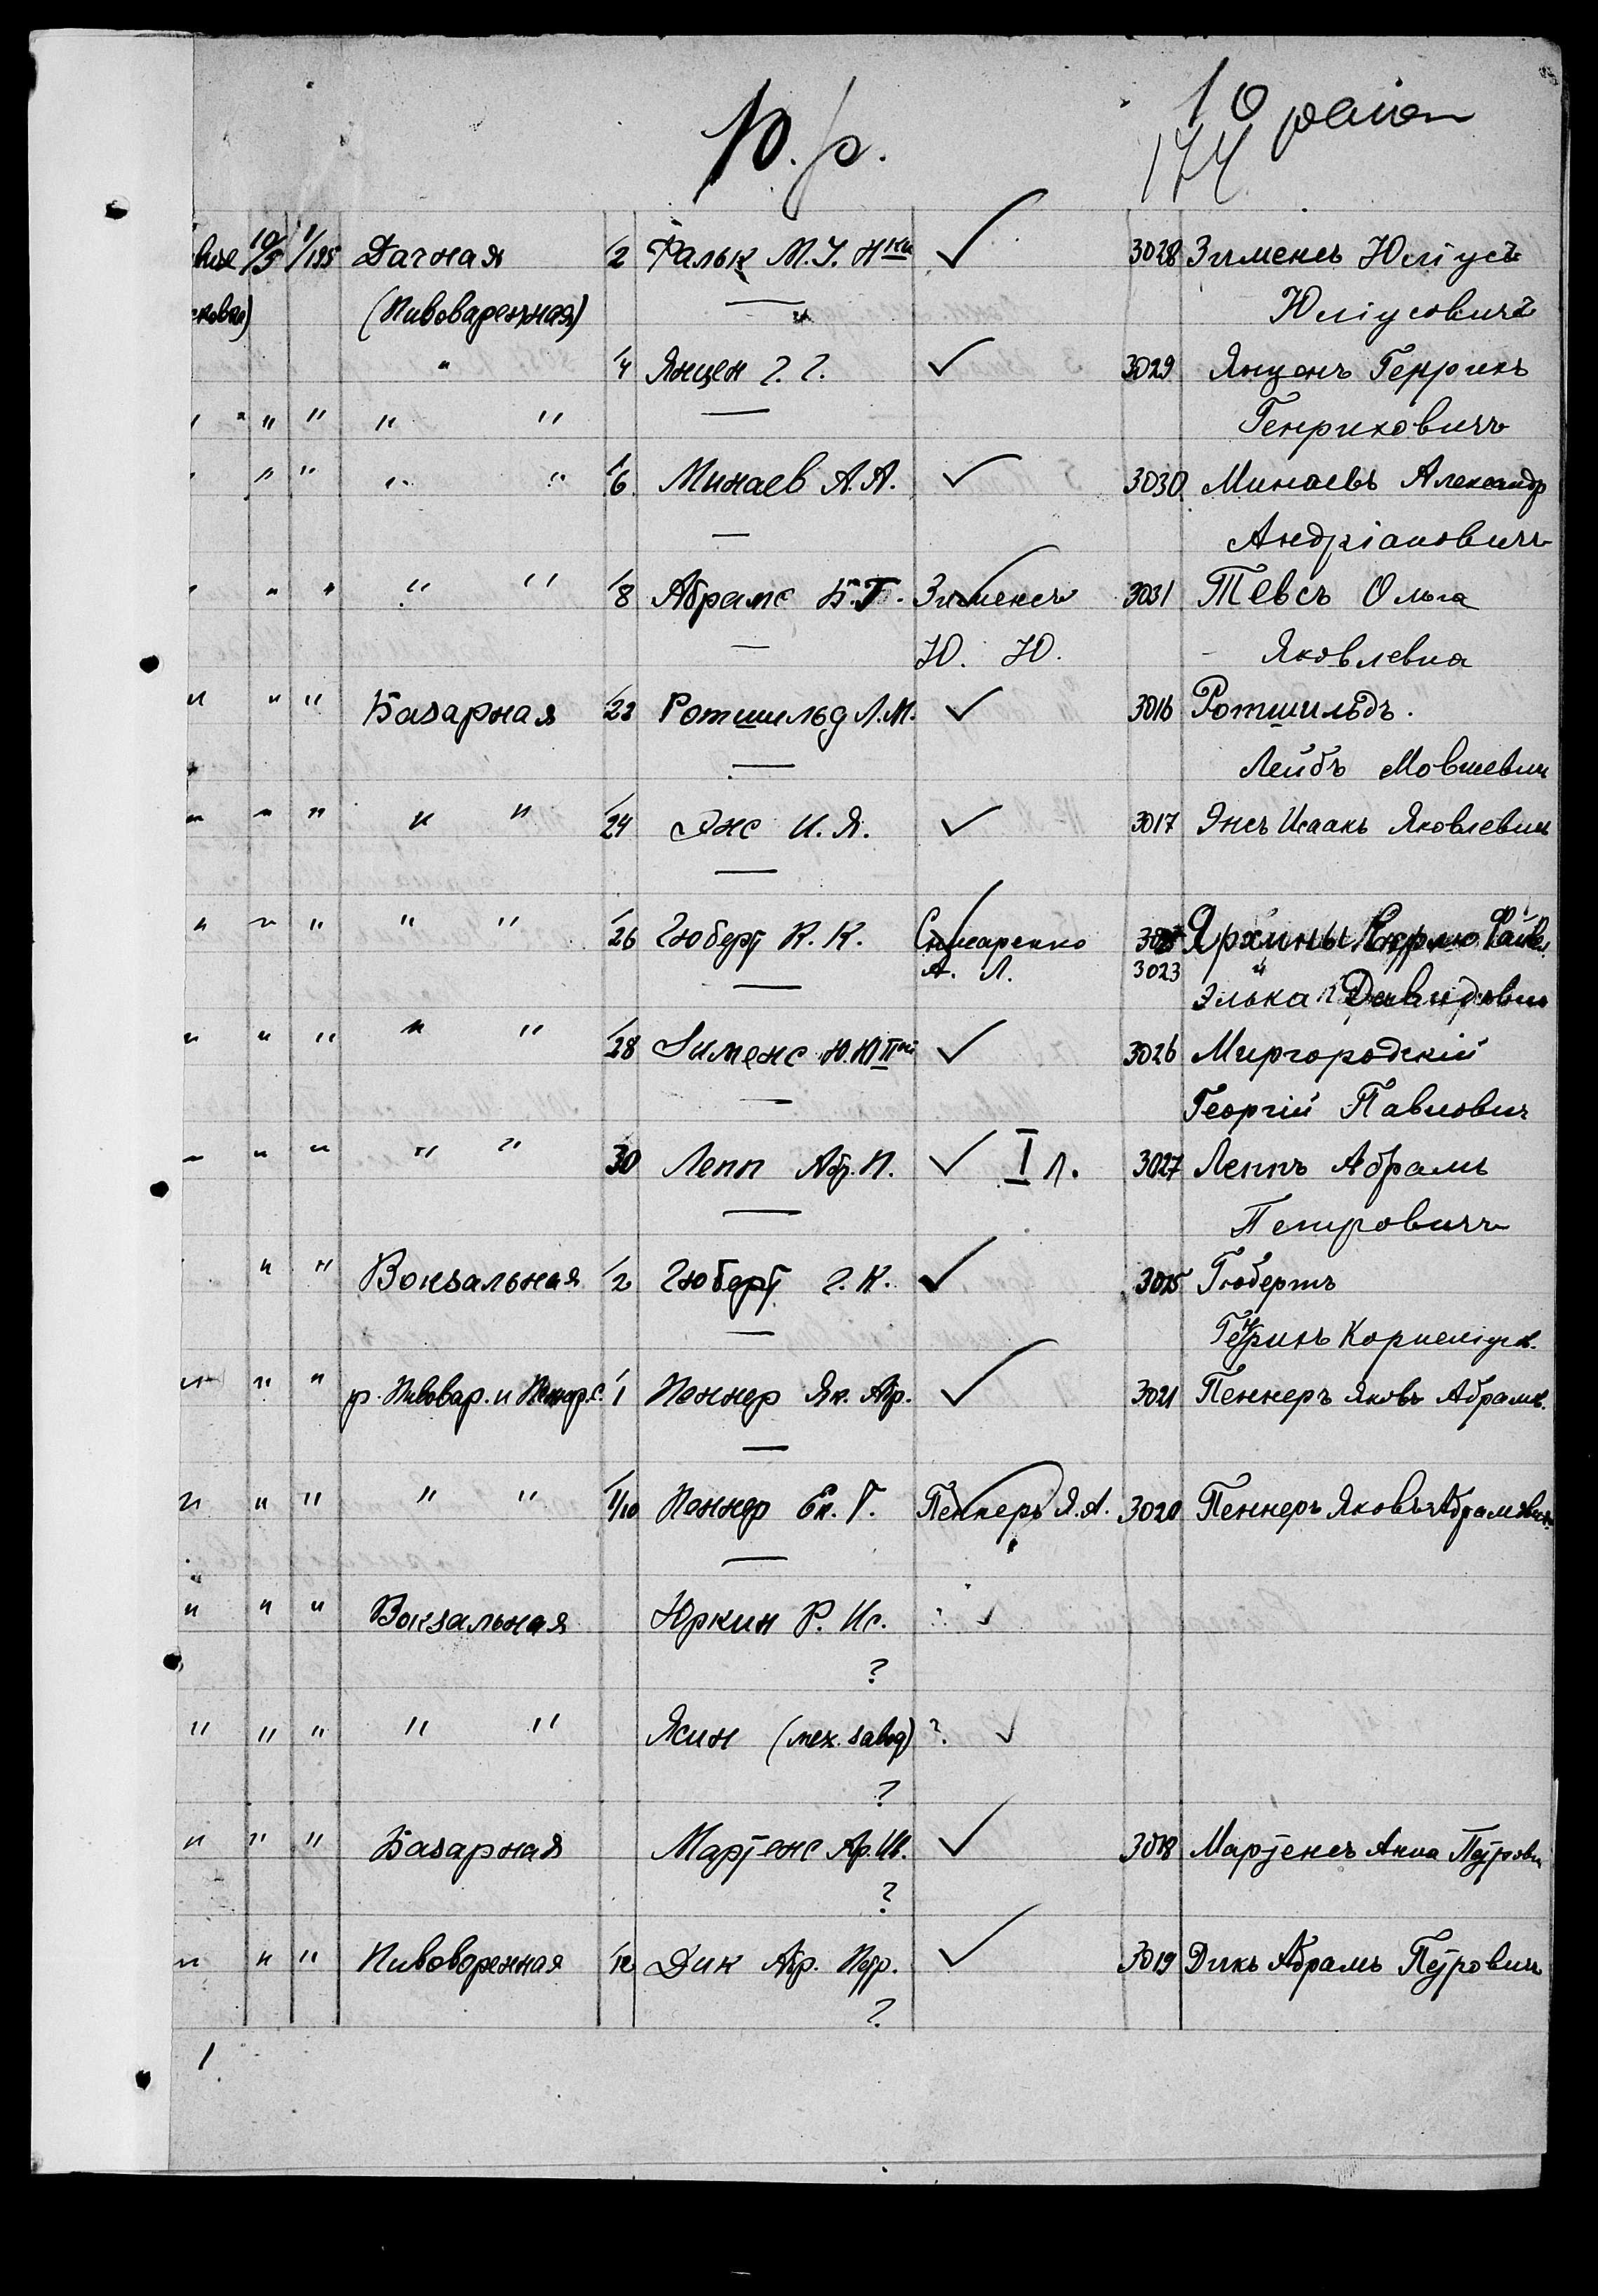 10 район
10. р.
174
10/5 1/195 Дачная 1/2 Фальк М.У. Н-ки ✓ 3028 Зименсъ Юліусъ
(Пивоваренная) — " Юліусовичъ
" 1/4 Янцен Г. Г. ✓ 3029 Янценъ Геррикъ
" " " " — Генриховичъ
" " " " 1/6 Минаев А.А. ✓ 3030 Минаевъ Александр
— Андріановичъ
" " " " 1/8 Абрамс Б.Г. Зименсъ 3031 Тевсъ Ольга
— Ю. Ю. Яковлевна
" " " Базарная 1/22 Ротшильд Л.М. ✓ 3016 Ротшильдъ.
— Лейбъ Мовшевич
" " " " " 1/24 Энс И. Я. ✓ 3017 Энсъ Исаакъ Яковлевичъ
—
" " " " " 1/26 Гюберт К. К.
А. Л. 3023
— Элька Давидович
" " " " " 1/28 Зименс Ю.Ю II-ой ✓ 3026 Миргородскій
— Георгій Павлович
" " " " " 30 Лепп Абр. П. ✓ I л. 3027 Леппъ Абрамъ
— Петровичъ
" " Вокзальная 1/2 Гюберт Г. К. ✓ 3025 Гюбертъ
— Генрихъ Корнеліусов.
" " " р. Пивовар. и 1/1 Пеннер Як. Абр. ✓ 3021 Пеннеръ Яковъ Абрамов.
—
" " " " " 1/10 Пеннер Ек. Г. Пеннеръ Я.А. 3020 Пеннеръ Яковъ Абрамович
—
" " " Вокзальная Юркин Р. Ис. ? ✓
?
" " " " " Ясин (мех. завод) ? ✓
?
" " " Базарная Мартенс Ар. Ив. ✓ 3018 Мартенсъ Анна Петровн
?
" " " Пивоваренная 1/12 Дик Абр. Петр. ✓ 3019 Дикъ Абрамъ Петрович
?
1